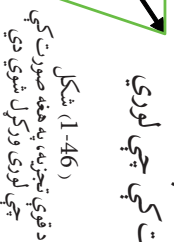 ت کې چې لوري
(1-46) شکل
د قوې تجزیه، په هغه صورت کې
چې لوری ورکړل شوی دي